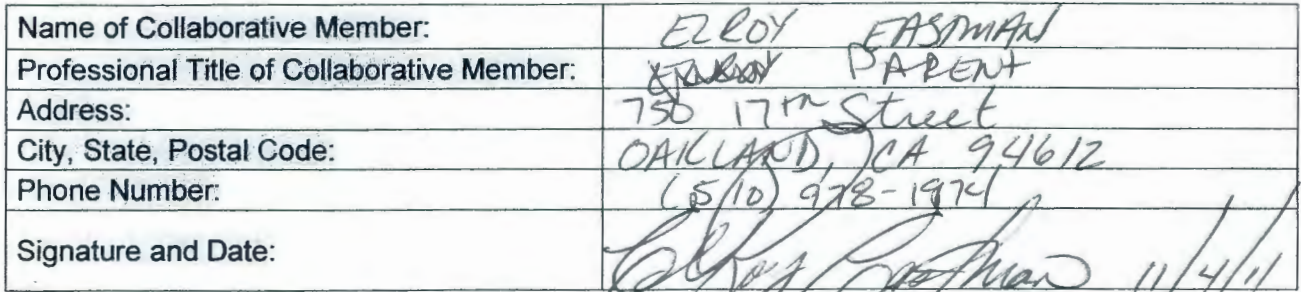 Name of Collaborative Member: ELROY EASTMAN
Professional Title of Collaborative Member: PARENT
Address: 750 17th Street
City, State, Postal Code: OAKLAND, CA 94612
Phone Number: (510) 978-1974
Signature and Date: ElRoy Eastman 11/4/11